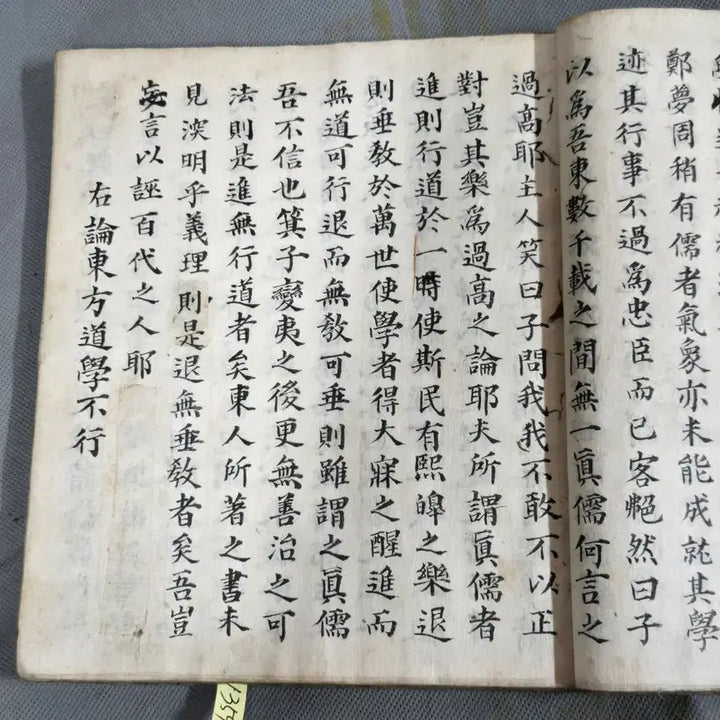 鄭夢周稍有儒者氣象亦未能成就其學
迹其行事不過爲忠臣而已客艴然曰子
以爲吾東數千載之間無一眞儒何言之
過高耶主人笑曰子問我我不敢不以正
對豈其樂爲過高之論耶夫所謂眞儒者
進則行道於一時使斯民有熙皞之樂退
則垂敎於萬世使學者得大寐之醒進而
無道可行退而無敎可垂則雖謂之眞儒
吾不信也箕子變夷之後更無善治之可
法則是進無行道者矣東人所著之書未
見深明乎義理則是退無垂敎者矣吾豈
妄言以誣百代之人耶
右論東方道學不行